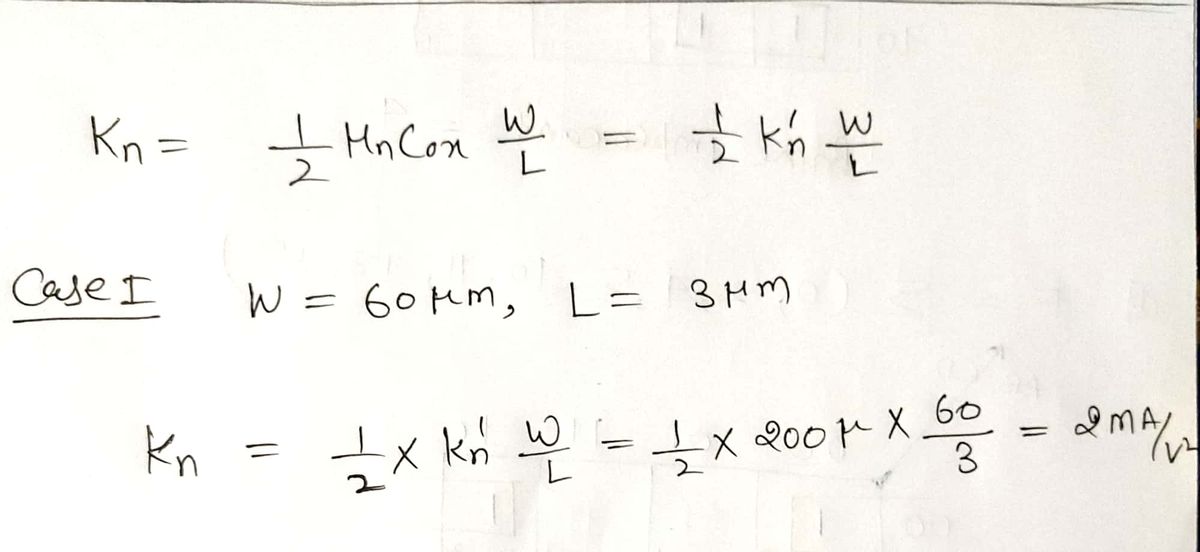 Kn = 1/2 μnCox W/L = 1/2 k'n W/L
Case I W = 60 μm, L = 3 μm
Kn = 1/2 × k'n W/L = 1/2 × 200 μ × 60/3 = 2 mA/V²